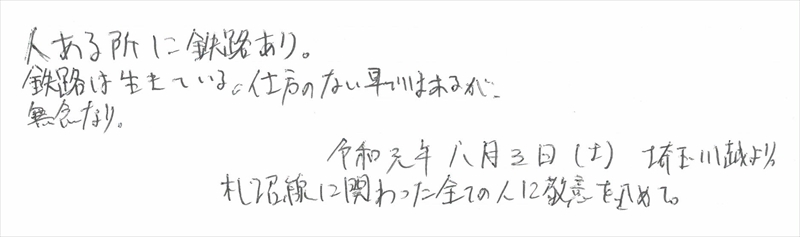 人ある所に鉄路あり。
鉄路は生きている。仕方のない事ではあるが、
無念なり。
令和元年八月三日(土) 埼玉川越より
札沼線に関わった全ての人に敬意を込めて。